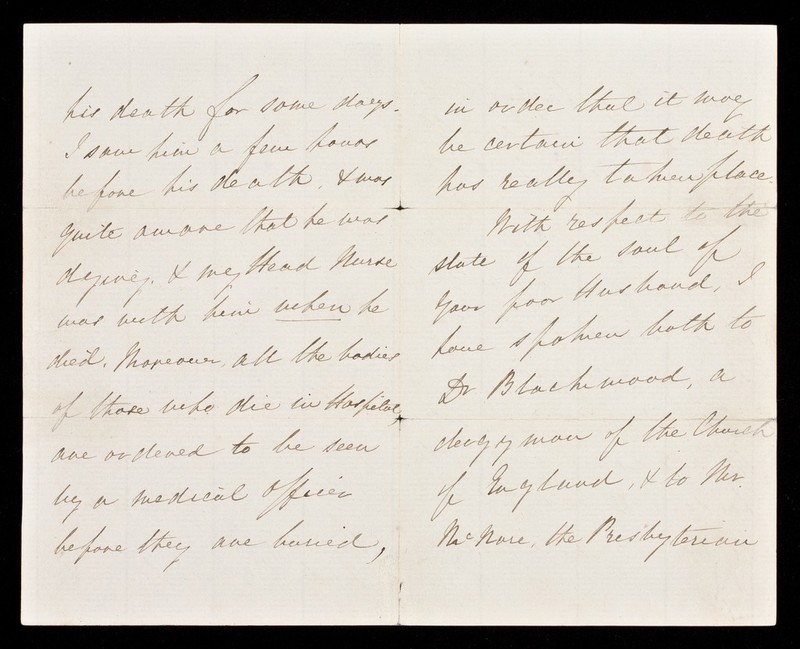 his death for some days.
I saw him a few hours
before his death, & was
quite aware that he was
dying. & my Head Nurse
was with him when he
died. Moreover, all the bodies
of those who die in Hospital,
are ordered to be seen
by a medical officer
before they are buried,
in order that it may
be certain that death
has really taken place.
With respect to the
state of the soul of
your poor Husband, I
have spoken both to
Dr Blackwood, a
clergyman of the Church
of England, & to Mr.
the Presbyterian